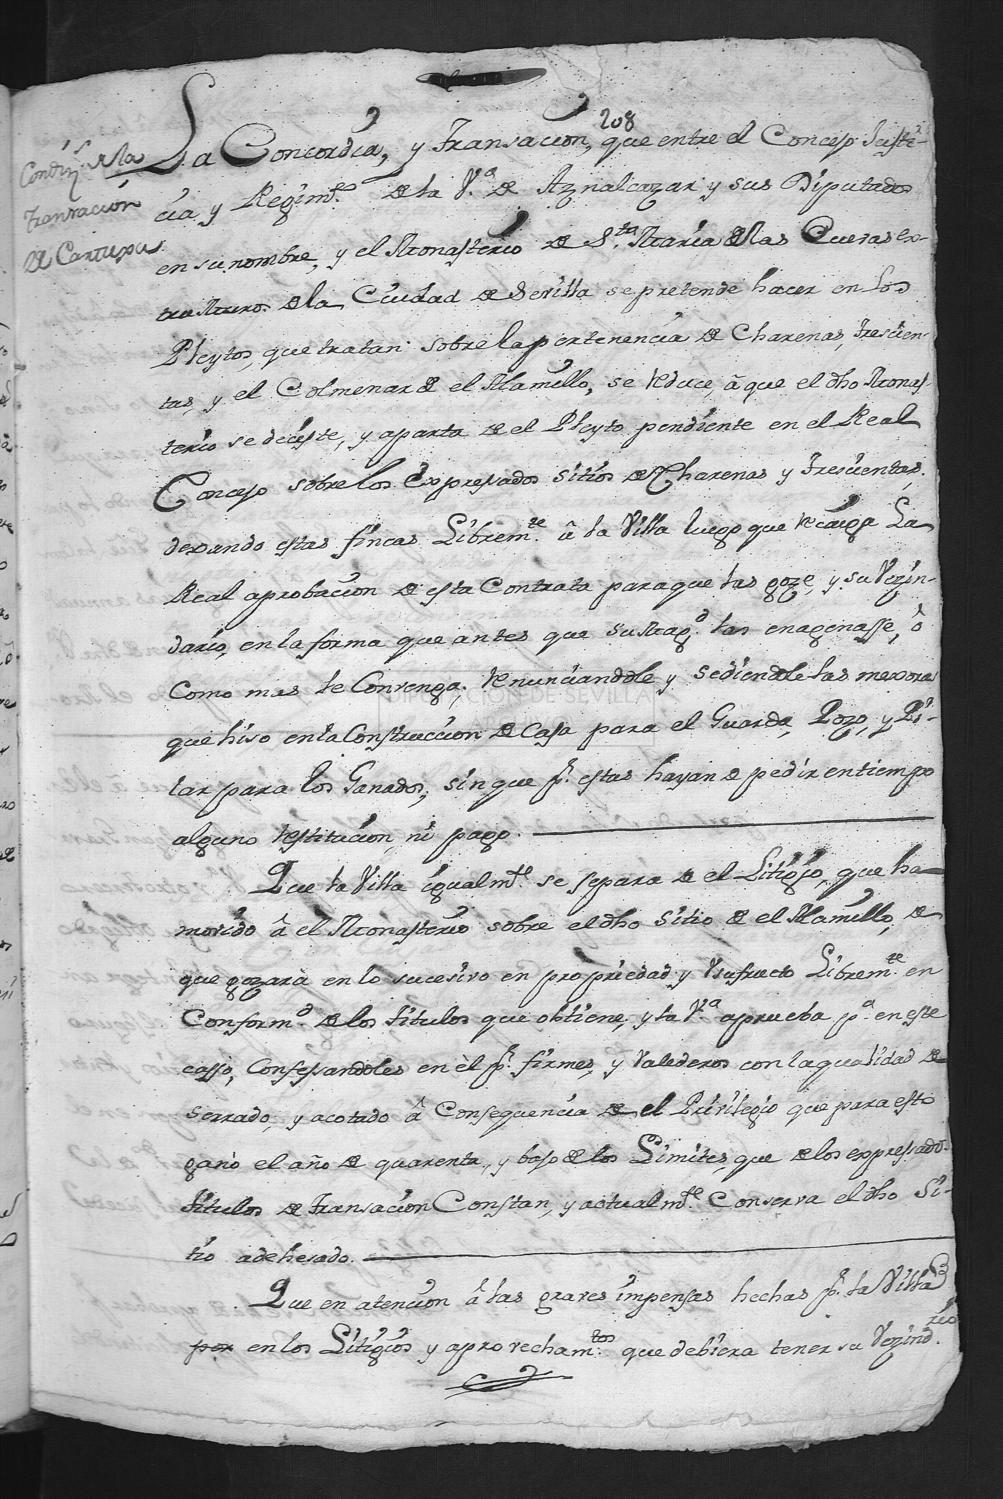 208
Condiz.s de la
transacion
de Cartuxa
La Concordia, y transacion, que entre el Concejo Justi-
cia, y Regim.to de la V.a de Aznalcazar y sus Diputados
en su nombre, y el Monasterio de S.ta Maria de las Cuevas ex-
tra Muros de la Ciudad de Sevilla se pretende hacer en los
Pleytos, que tratan sobre la pertenencia de Charenas, trescien-
tas, y el Colmenar de el Alamillo, se reduce, â que el dho Monas-
terio se deciste, y aparta de el Pleyto pendiente en el Real
Concejo sobre los expresados sitios de Charenas y trescientas;
dexando estas fincas Librem.te â la Villa luego que recaiga La
Real aprobacion de esta Contrata para que las goze, y su Vezin-
dario, en la forma que antes que su Mag.d las enagenasse, ô
como mas le Convenga; renunciandole y sediendole las mexoras
que hiso en la Construccion de Casa para el Guarda, Pozo, y Pi-
lar para los Ganados; sin que p.r estas hayan de pedir en tiempo
alguno restitucion, ni pago.
Que la Villa igualm.te se separa de el Litigio, que ha
movido â el Monasterio sobre el dho Sitio de el Alamillo, de
que gozarà en lo sucesivo en propriedad y Usufructo Librem.te en
Conform.d de los titulos que obtiene, y la V.a aprueba p.a en este
casso, Confesandoles en èl p.r firmes, y Valederos con la qualidad de
serrado, y acotado â Consequencia de el Privilegio que para esto
ganò el año de quarenta, y bajo de los Limites, que de los expresados
titulos de Transacion Constan, y actualm.te Conserva el dho Si-
tio adehesado.
Que en atencion â las graves impensas hechas p.r la Villa
por en los Litigios y aprovecham.tos que debiera tener su Vezind.rio
DIPUTACION DE SEVILLA
ARCHIVO